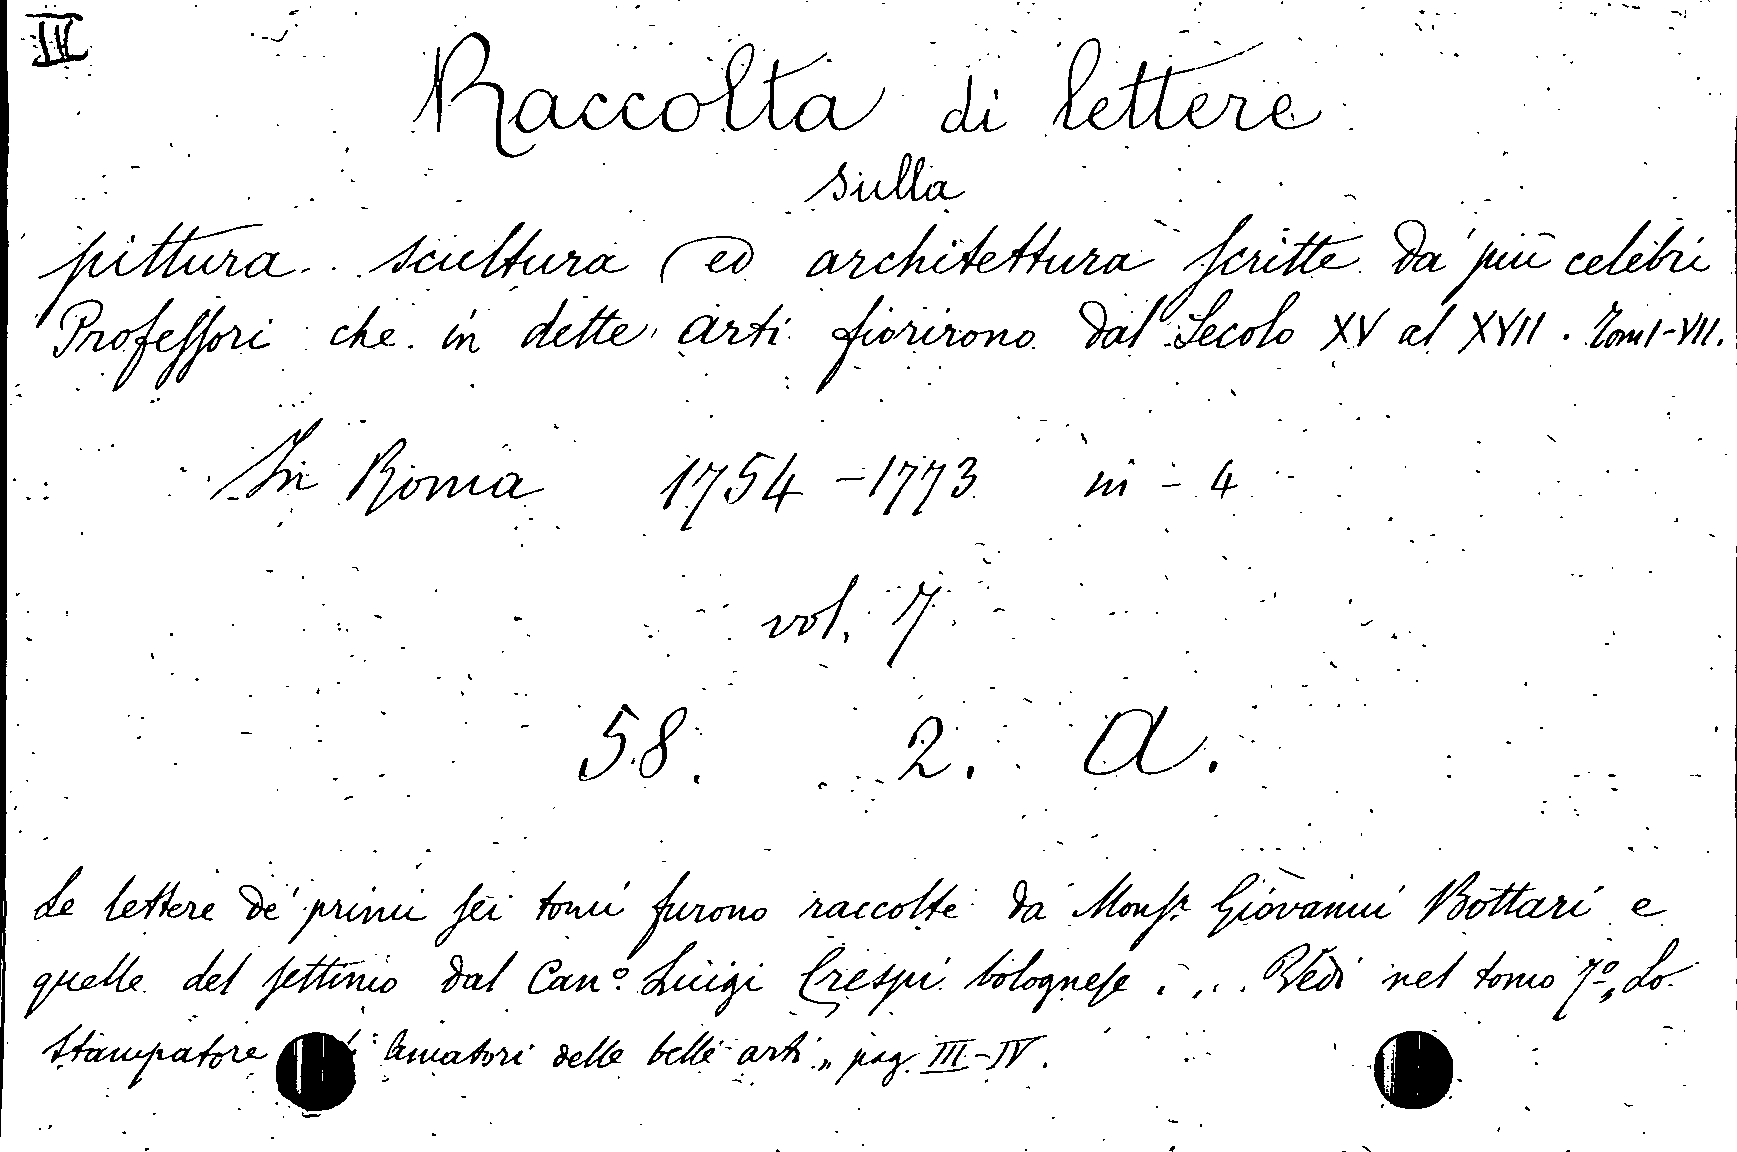 IV
Raccolta di lettere
sulla
pittura scultura ed architettura scritte da' più celebri
Professori che in dette arti fiorirono dal Secolo XV al XVII. Tom I-VII.
In Roma 1754-1773 in-4
vol. 7.
58. 2. A.
Le lettere de' primi sei tomi furono raccolte da Monsr. Giovanni Bottari e
quelle del settimo dal Can.º Luigi Crespi bolognese.... Vedi nel tomo 7º „Lo
Stampatore amatori delle belle arti„ pag. III-IV.